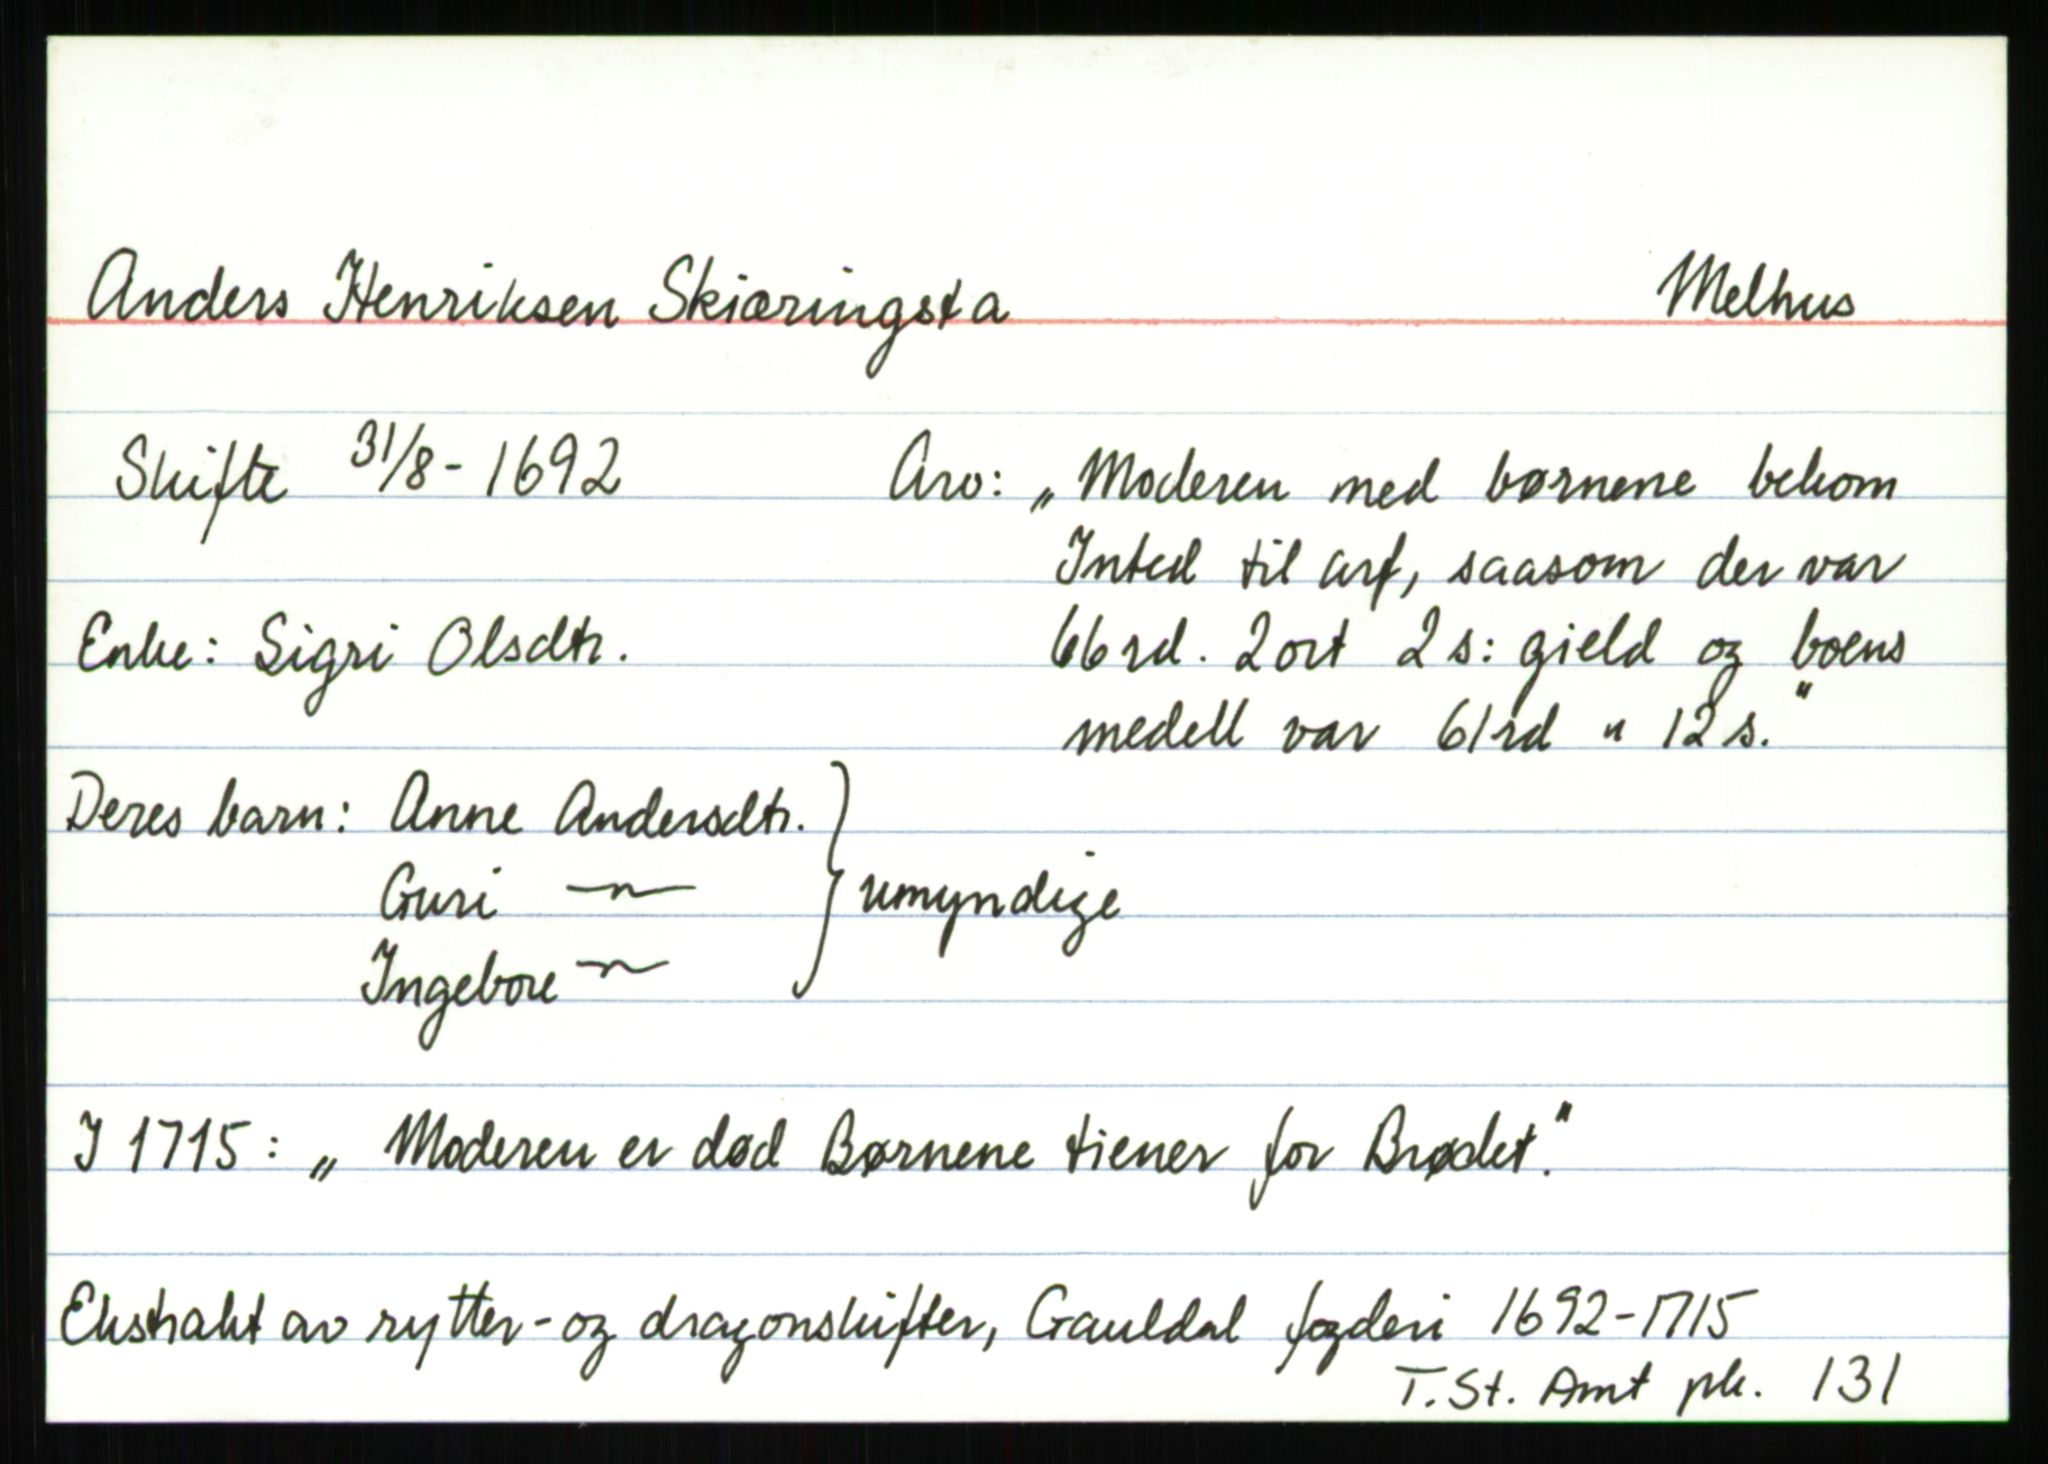 Anders Henriksen Skiæringsta Melhus
Skifte 31/8-1692
Enke: Sigri Olsdtr.
Arv: „Moderen med børnene bekom
Inted til arf, saasom der var
66 rd. 2 ort 2 s: gield og boens
medell var 61 rd " 12 s."
Deres barn: Anne Andersdtr.
Guri —"—
Ingebore —"—
} umyndige
I 1715: „Moderen er død Børnene tiener for Brødet."
Ekstrakt av rytter- og dragonskifter, Gauldal fogderi 1692-1715
T. St. Amt pk. 131